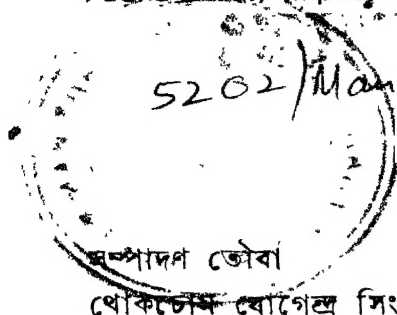 5202/Man
সম্পাদনা তৌবা
থোকচোম যোগেন্দ্র সিং